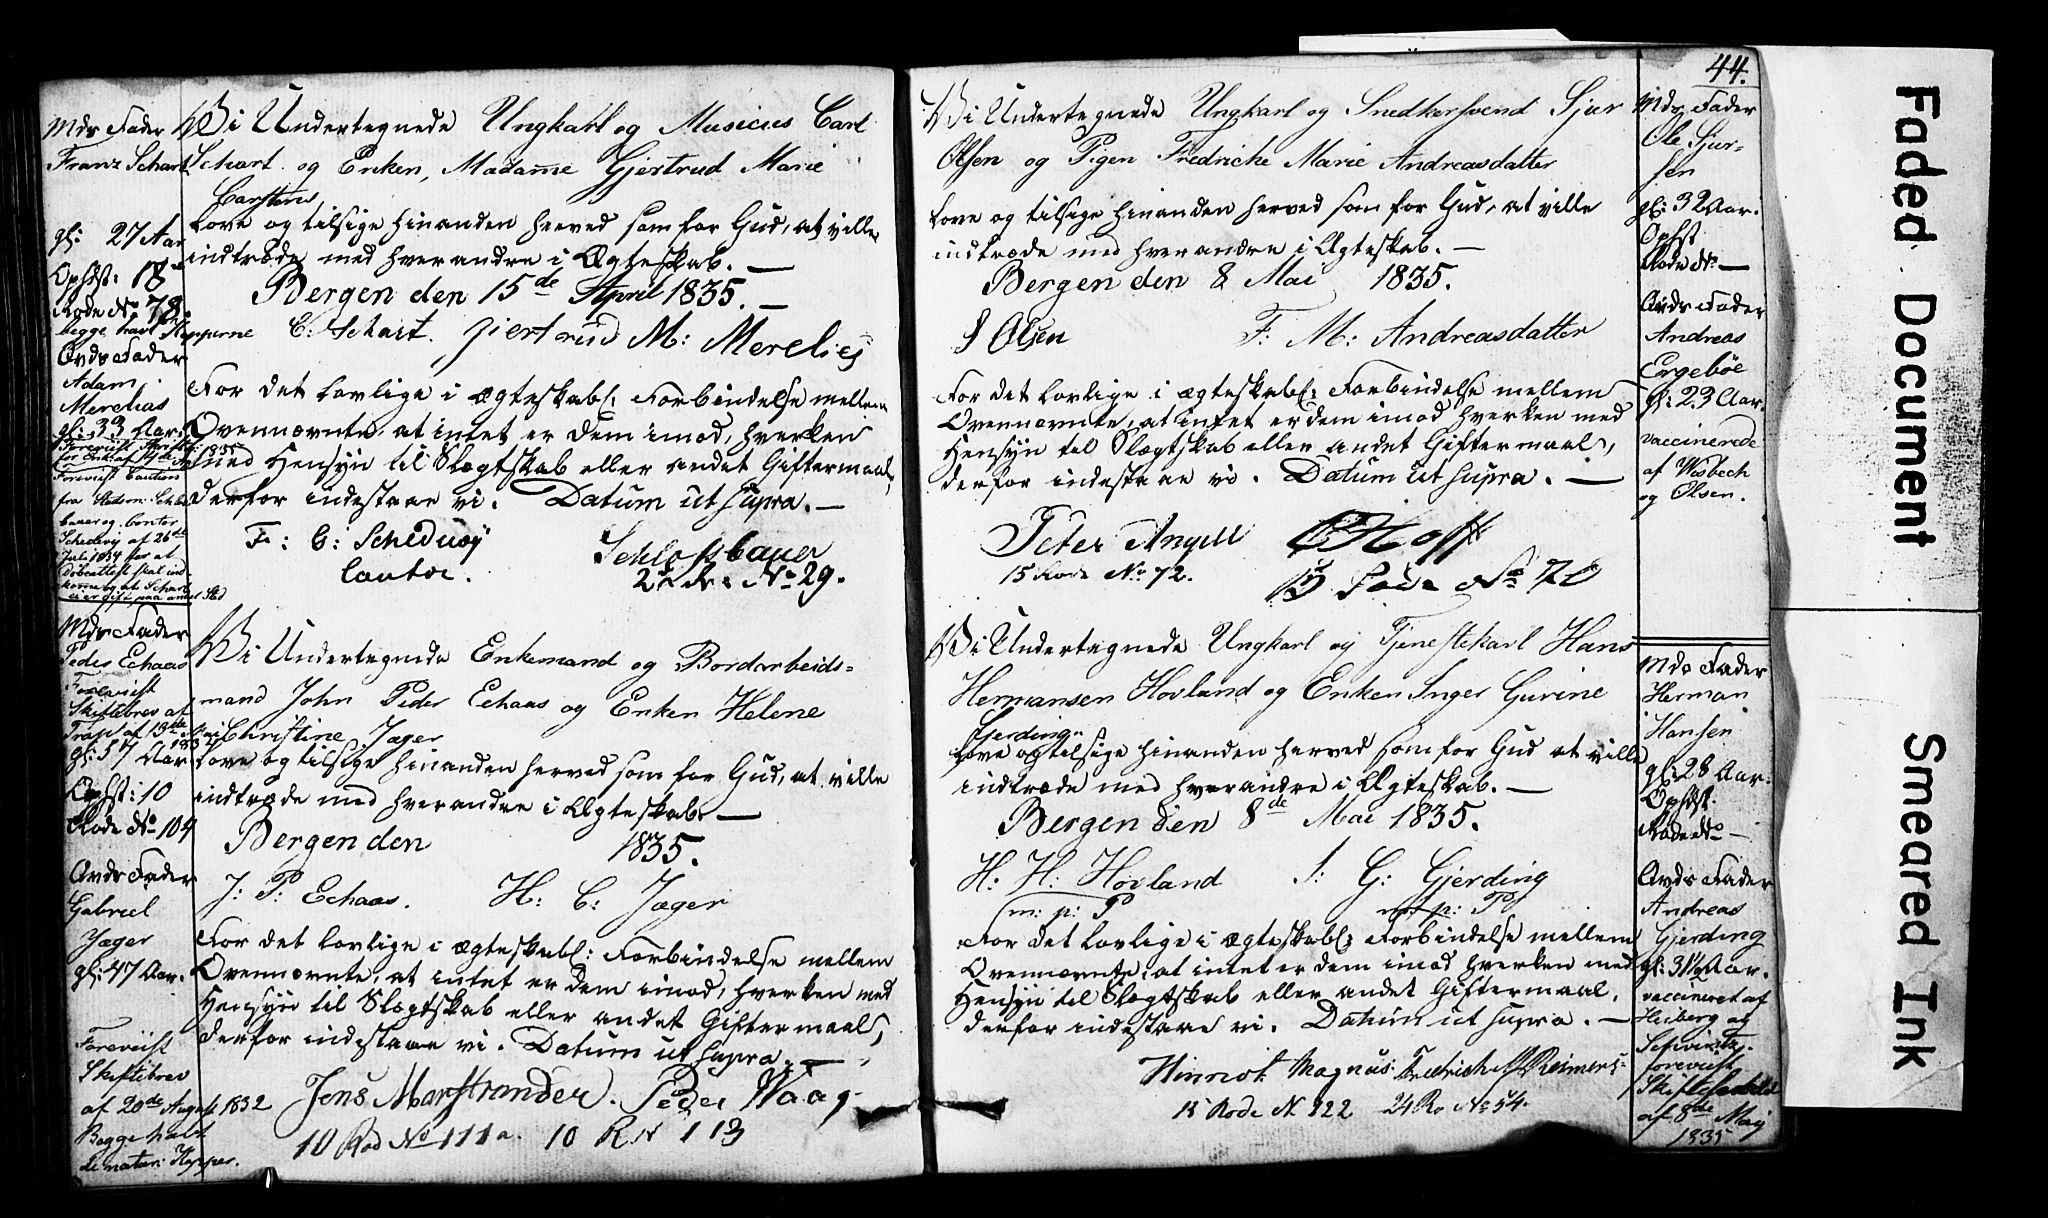 Mds Fader
Franz Schart
gl: 27 Aar
Ophst: 18
Rode No 78.
begge havt Kopperne
Brds Fader
Adam
Merelias
gl: 33 Aar.
Foreviist Caution
fra
bauer og Cantor
Scheduvy af 26de
Juli 1834 for at
Døbeattest skal ind
komme og at Schart
ei er gift paa andet Sted
Vi Undertegnede Ungkarl og Musicus Carl
Schart og Enken, Madame Gjertrud Marie
Carstens
love og tilsige hinanden herved som for Gud, at ville
indtræde med hverandre i Ægteskab. —
Bergen den 15de April 1835. —
C: Schart. Giertrud M: Merelies
For det lovlige i ægteskabl: Forbindelse mellem
Ovennævnte, at intet er dem imod, hverken
med Hensyn til Slægtskab eller andet Giftermaal,
derfor indestaae vi. Datum ut supra. —
F: C: Scheduvy Schlossbauer
Cantor. 2de R. No 29.
Mds Fader
Peder Echaas
Foreviist
Skiftebrev af
gl: 57 Aar
Ophst: 10
Rode No 104
Brds Fader
Gabriel
Jæger
gl: 47 Aar.
Foreviist
Skiftebrev
af 20de August 1832
Begge havt
de naturl: Kopper.
Vi Undertegnede Enkemand og Bordarbeids=
mand John Peder Echaas og Enken Helene
Christine Jæger
love og tilsige hinanden herved som for Gud, at ville
indtræde med hverandre i Ægteskab —
Bergen den 1835.
J: P: Echaas. H: C: Jæger
For det lovlige i ægteskabl: Forbindelse mellem
Ovennævnte, at intet er dem imod, hverken med
Hensyn til Slægtskab eller andet Giftermaal,
derfor indestaae vi. Datum ut supra. —
Jens Marstrander. Peder Waag
10 Rod No 111a. 10 R No 113
44.
Vi Undertegnede Ungkarl og Snedkersvend Sjur
Olsen og Pigen Fredricke Marie Andreasdatter
love og tilsige hinanden herved som for Gud, at ville
indtræde med hverandre i Ægteskab. —
Bergen den 8 Mai 1835.
S Olsen F: M: Andreasdatter
For det lovlige i ægteskabl: Forbindelse mellem
Ovennævnte, at intet er dem imod hverken med
Hensyn til Slægtskab eller andet Giftermaal,
derfor indestaae vi. Datum ut supra. —
Peter Angell CHoff
15 Rode No 72. 15 Rode No 70
Mds Fader
Ole Sjur-
sen
gl: 32 Aar.
Ophst
Rode No —
Brds Fader
Andreas
Ergebøe
gl: 23 Aar.
vaccinerede
af Wisbech
og Olsen.
Vi Undertegnede Ungkarl og Tjenestekarl Hans
Hermansen Hovland og Enken Inger Gurine
Gjerding
love og tilsige hinanden herved som for Gud at ville
indtræde med hverandre i Ægteskab. —
Bergen den 8de Mai 1835.
H: H: Hovland I: G: Gjerding
m: p: P m: p: P
For det lovlige i ægteskabl: Forbindelse mellem
Ovennævnte, at intet er dem imod hverken med
Hensyn til Slægtskab eller andet Giftermaal,
derfor indestaae vi. Datum ut supra. —
Hinrich Magnus: Fredrich Reimers
15 Rode N 122 24 Ro No 54.
Mds Fader
Herman
Hansen
gl: 28 Aar.
Ophst.
Rode No —
Brds Fader
Andreas
Gjerding
gl: 31½ Aar.
vaccineret af
Heiberg og
foreviist
af 8de May
1835
Faded Document
Smeared Ink